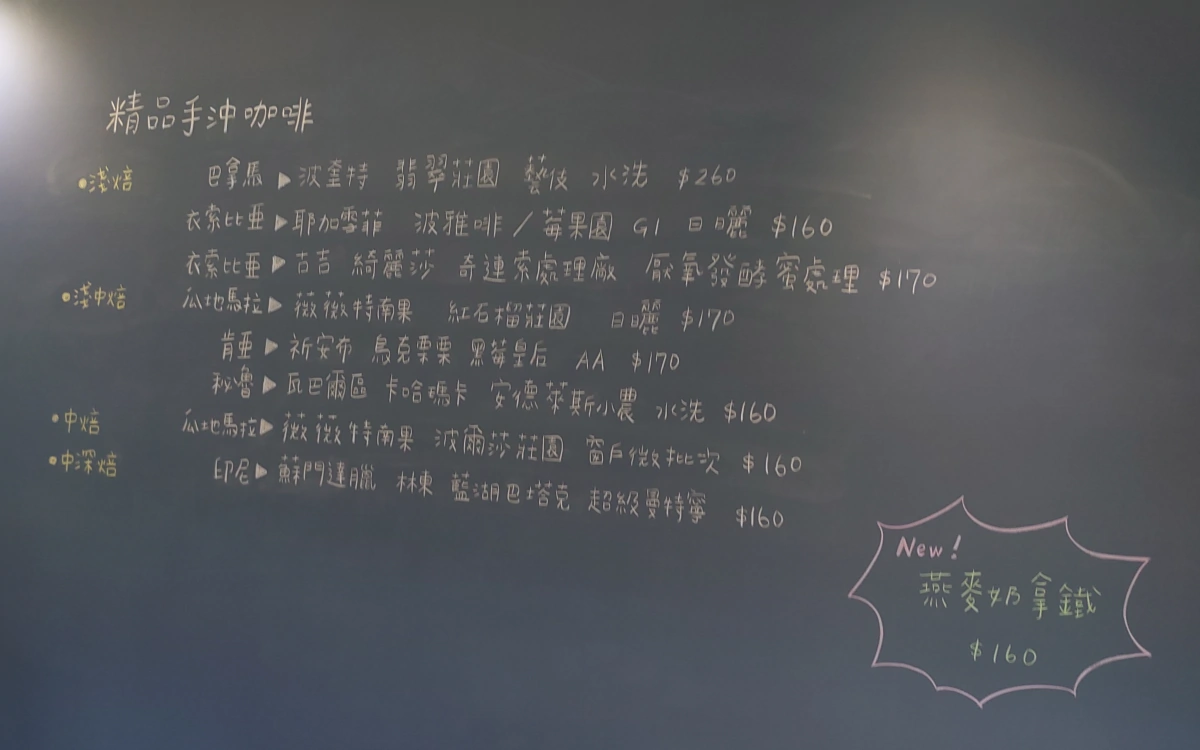 精品手沖咖啡
•淺焙 巴拿馬▶波奎特 翡翠莊園 藝伎 水洗 $260
衣索比亞▶耶加雪菲 波雅啡/莓果園 G1 日曬 $160
衣索比亞▶古吉 綺麗莎 奇連索處理廠 厭氧發酵蜜處理 $170
•淺中焙 瓜地馬拉▶薇薇特南果 紅石榴莊園 日曬 $170
肯亞▶祈安布 烏克栗栗 黑莓皇后 AA $170
秘魯▶瓦巴爾區 卡哈瑪卡 安德萊斯小農 水洗 $160
•中焙 瓜地馬拉▶薇薇特南果 波爾莎莊園 窗戶微批次 $160
•中深焙 印尼▶蘇門達臘 林東 藍湖巴塔克 超級曼特寧 $160
New!
燕麥奶拿鐵
$160